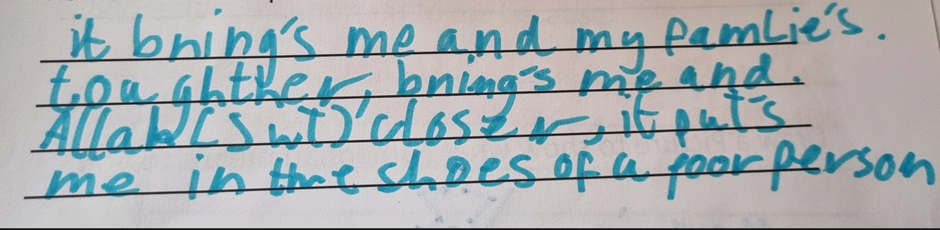 it bning's me and my pamlie's.
toughther, bning's me and.
Allah (SWT) closer, it put's
me in the shoes of a poor person